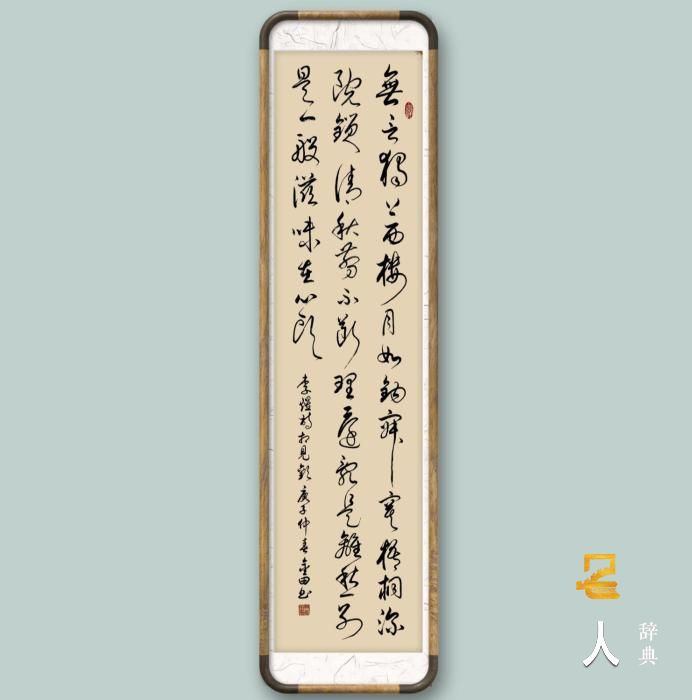 無言獨上西樓月如鉤寂寞梧桐深
院鎖清秋剪不斷理還亂是離愁別
是一般滋味在心頭
李煜詩相見歡庚子仲春金田书
名人
辞典